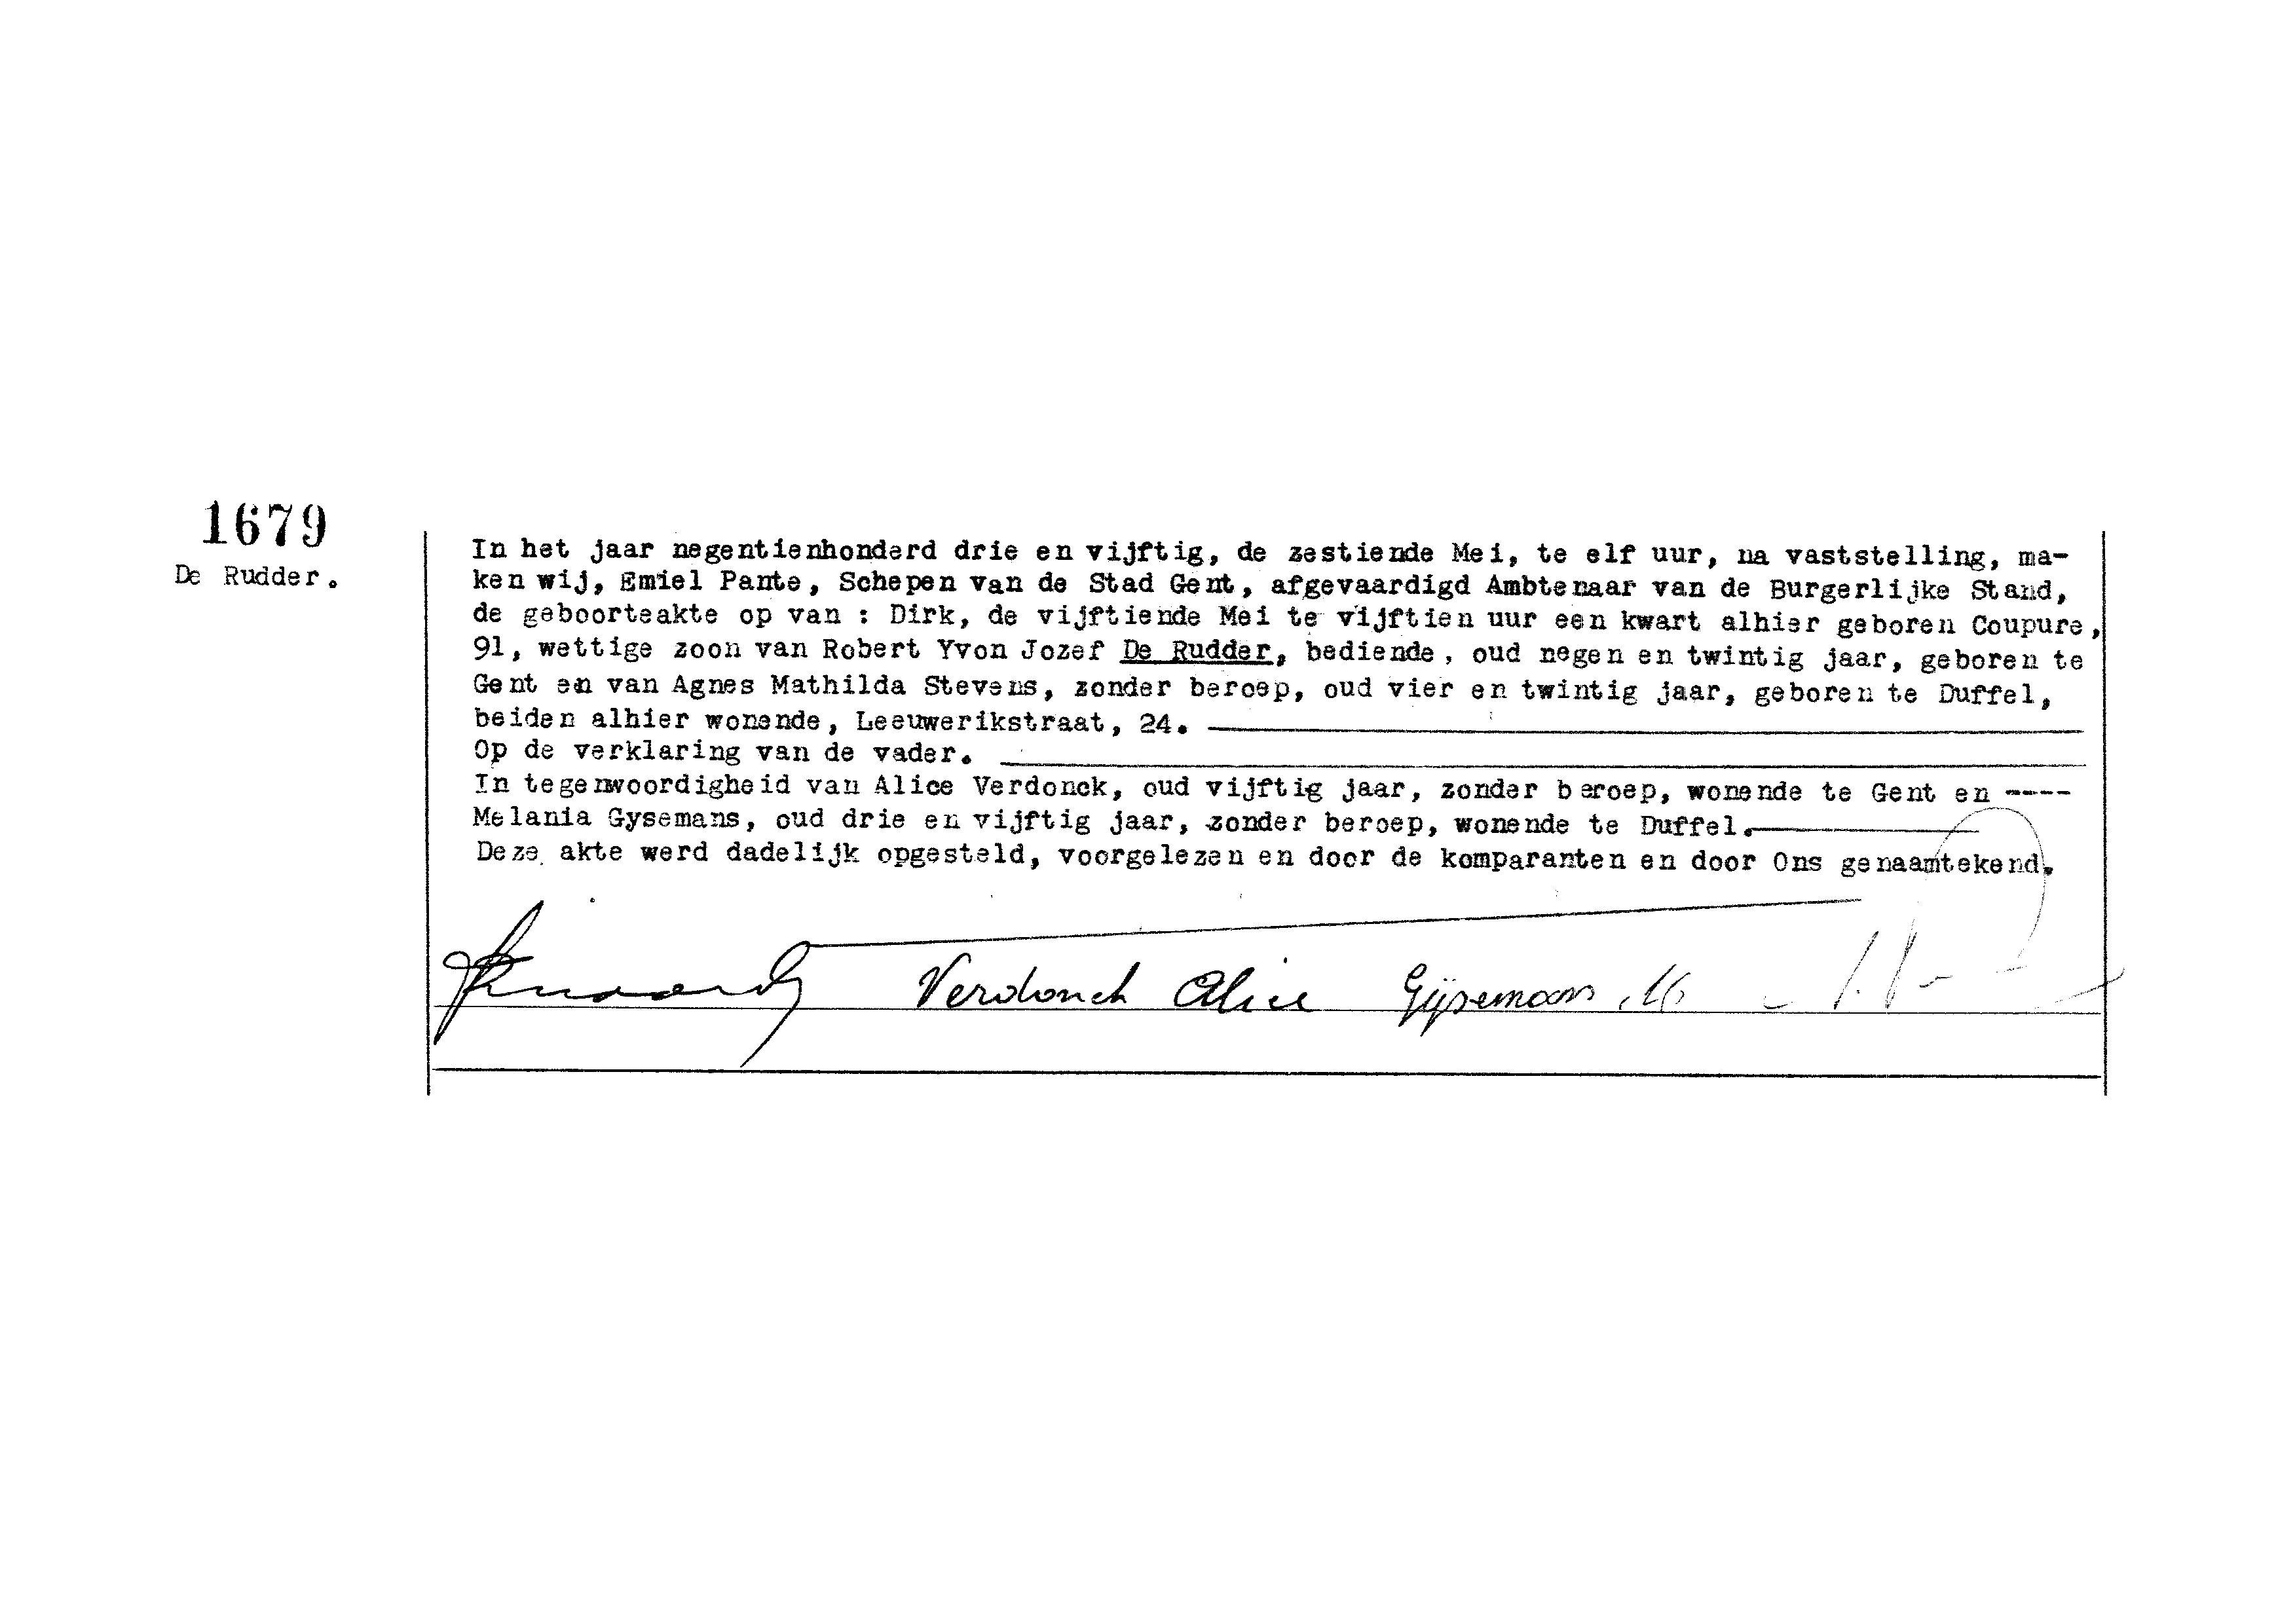 1679
De Rudder.
In het jaar negentienhonderd drie en vijftig, de zestiende Mei, te elf uur, na vaststelling, ma-
ken wij, Emiel Pante, Schepen van de Stad Gent, afgevaardigd Ambtenaar van de Burgerlijke Stand,
de geboorteakte op van : Dirk, de vijftiende Mei te vijftien uur een kwart alhier geboren Coupure,
91, wettige zoon van Robert Yvon Jozef De Rudder, bediende, oud negen en twintig jaar, geboren te
Gent en van Agnes Mathilda Stevens, zonder beroep, oud vier en twintig jaar, geboren te Duffel,
beiden alhier wonende, Leeuwerikstraat, 24.
Op de verklaring van de vader.
In tegenwoordigheid van Alice Verdonck, oud vijftig jaar, zonder beroep, wonende te Gent en ----
Melania Gysemans, oud drie en vijftig jaar, zonder beroep, wonende te Duffel.
Deze akte werd dadelijk opgesteld, voorgelezen en door de komparanten en door Ons genaamtekend.
Verdonck Alice Gijsemans